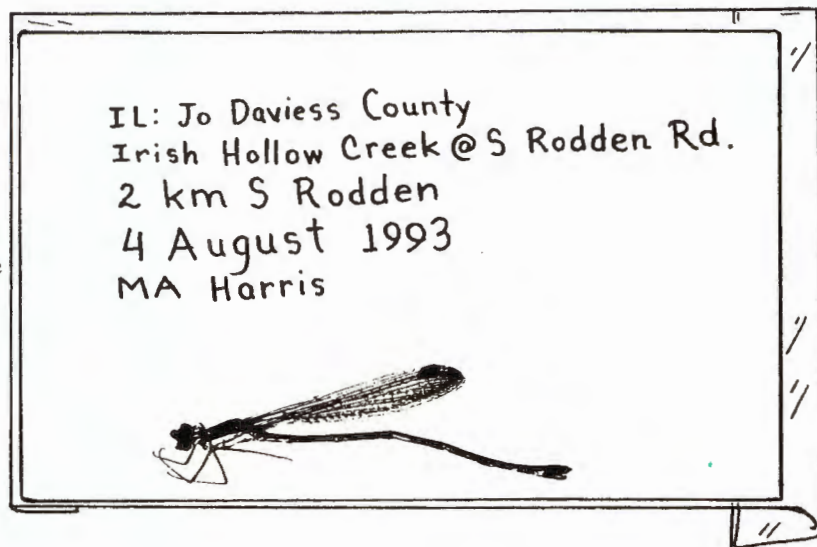 IL: Jo Daviess County
Irish Hollow Creek @ S Rodden Rd.
2 km S Rodden
4 August 1993
MA Harris